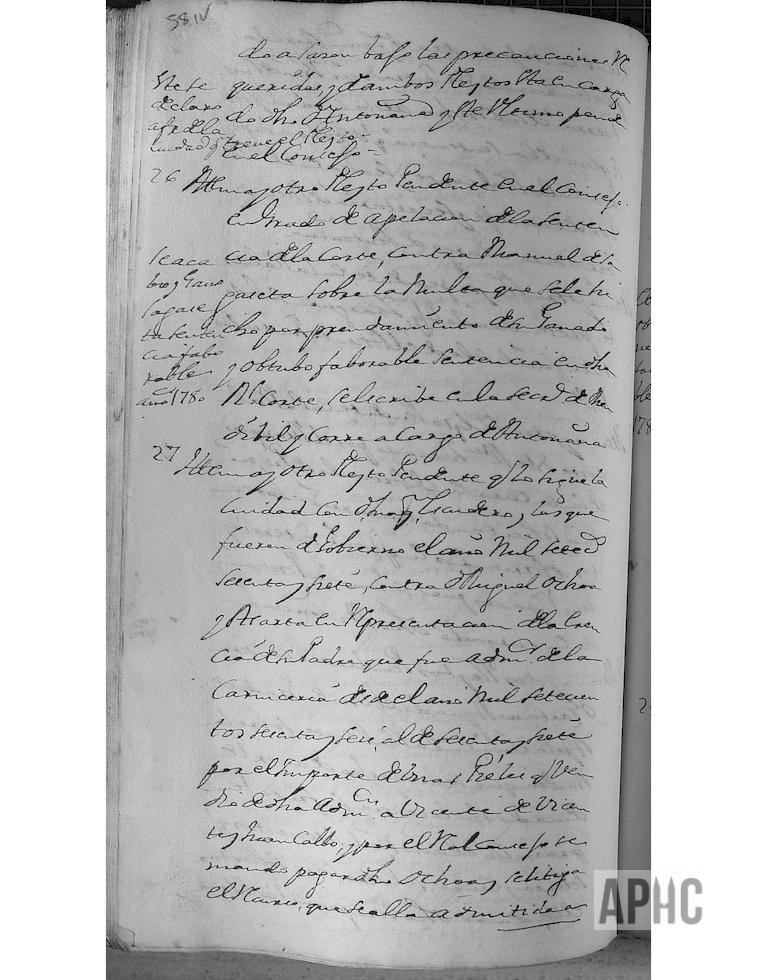 58. IV
do a Saron bajo las precauciones Re
queridas, y de ambos Pleytos esta en cargo
do dho Antoñana y este Ultimo pende
en el Consejo -
Este se
declaro
a fr. dla
ciudad q tiene el Pleyto -
26 Ittem ay otro Pleyto Pendente en el Consejo
en Grado de apelacion de la Senten
cia de la Corte, Contra Manuel de Sa
gaseta sobre la Multa que se le hi
cho por prendamiento de su Ganado
y obtubo faborable sentencia en dha
Rl. Corte, se escribe en la Secrd. de Men
dibil y Corre a Cargo de Antoñana
se aca
bo y Gano
Sagase
ta senten
cia fabo
rable
año 1780
27 Ittem ay otro Pleyto Pendente q lo sigue la
Ciudad con dho Escudero, y los que
fueron de Gobierno el año Mil Setecs
Sesenta y siete, contra Miguel Ochoa
y Azarta en Representacion de la heren
cia de su Padre que fue Admr. de la
Carniceria desde el año Mil Setecien
tos sesenta y seis, al de Sesenta y siete
por el Importe de unas Pieles q Ven
dio de dha Admon a Vicente de Vicen
te y Juan Calbo, y por el Real Consejo se
mando pagar dho Ochoa, y se litiga
el Nuevo, que se alla admitido a
APHC